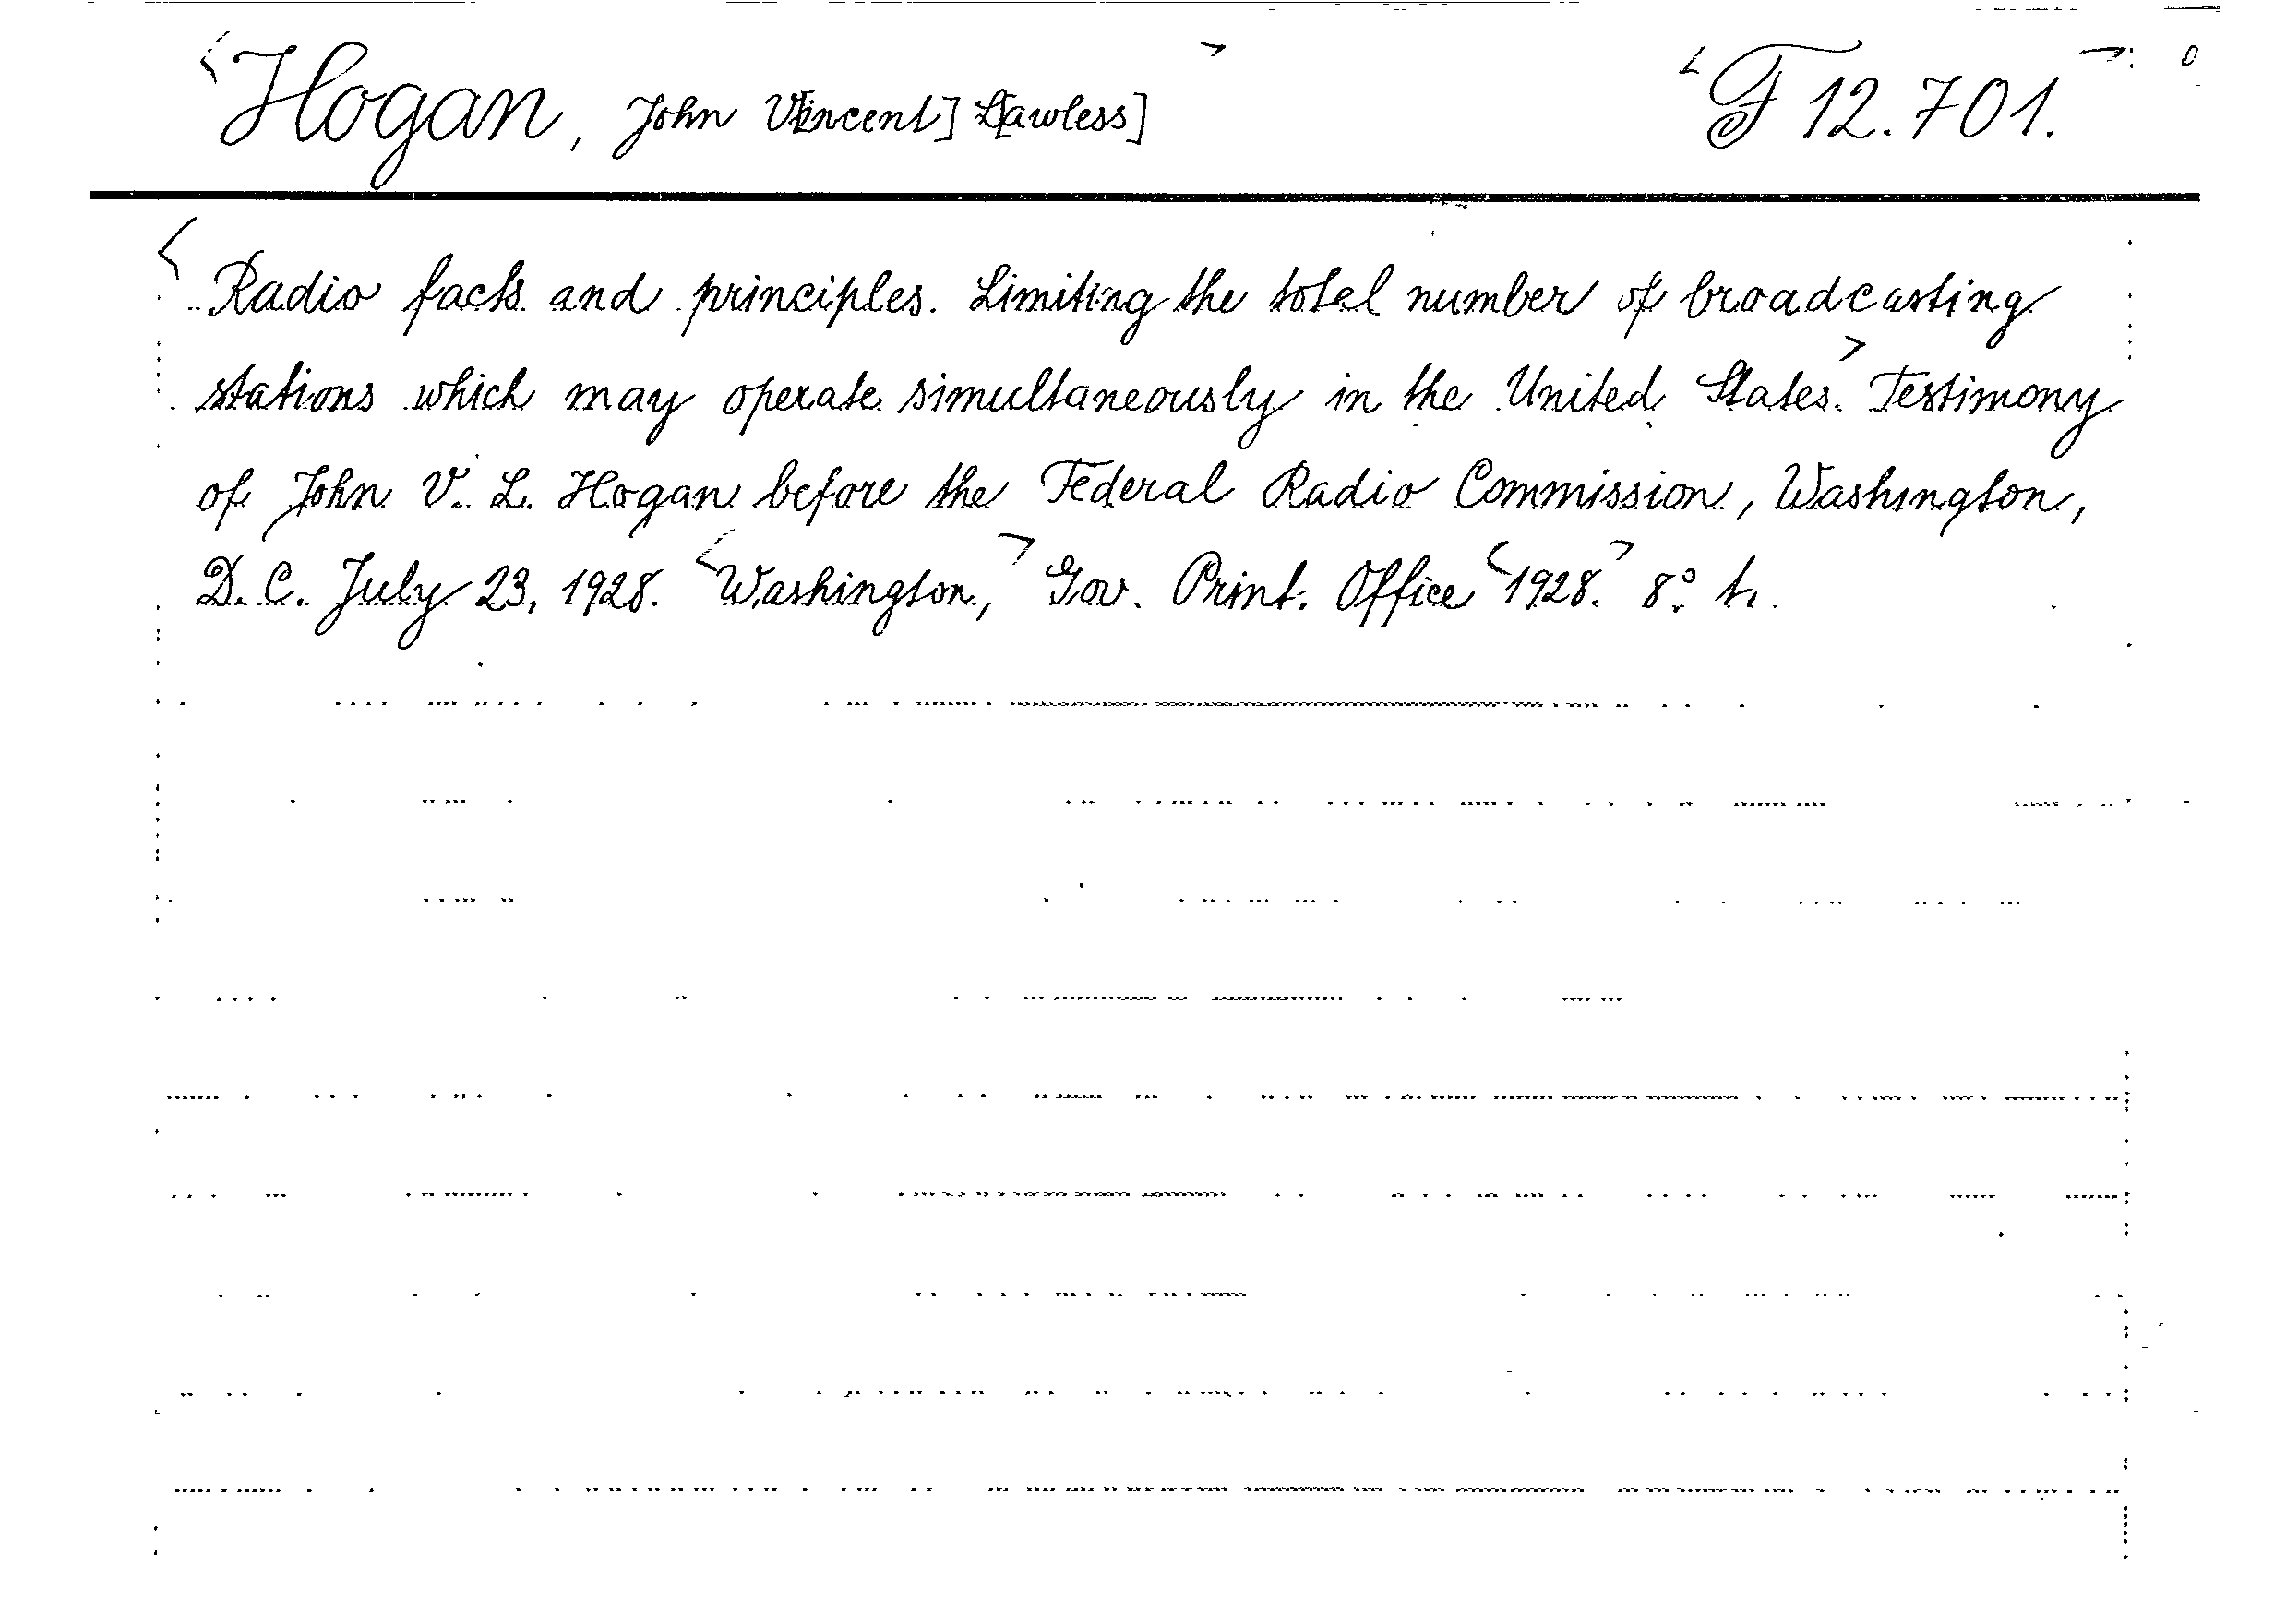 Hogan, John V[incent] L[awless] F 12.701.
Radio facts and principles. Limiting the total number of broadcasting
stations which may operate simultaneously in the United States. Testimony
of John V. L. Hogan before the Federal Radio Commission, Washington,
D. C. July 23, 1928. Washington, Gov. Print. Office 1928. 8°